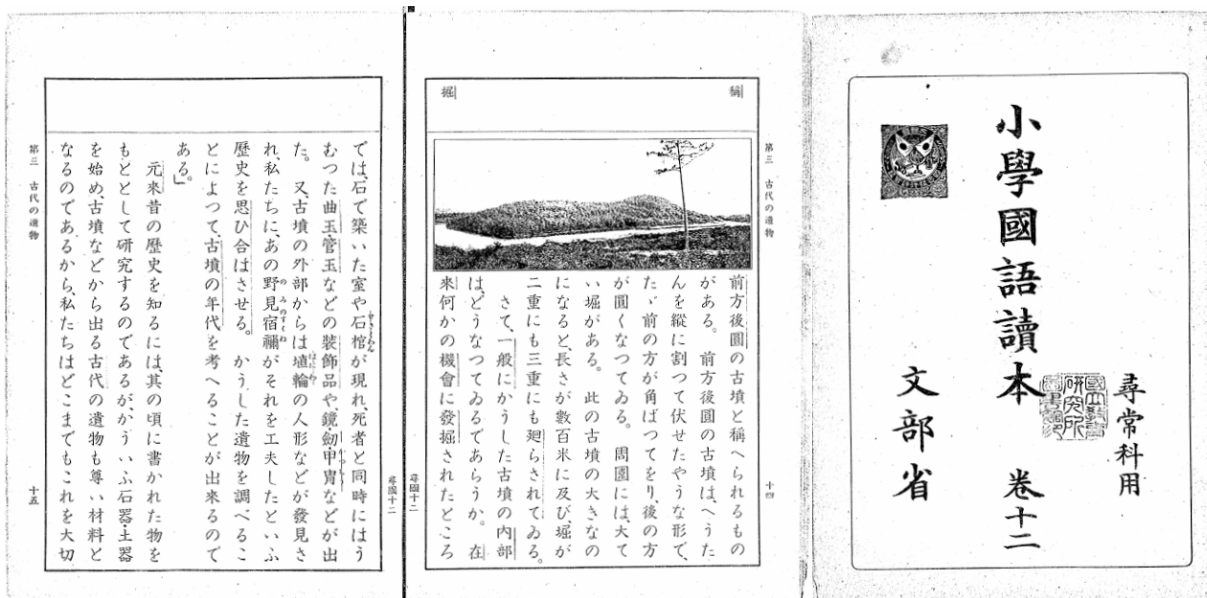 尋常科用
小學國語讀本 卷十二
文部省
第三 古代の遺物
十四
稱
掘
前方後圓の古墳と稱へられるもの
がある。 前方後圓の古墳は、へうた
んを縱に割つて伏せたやうな形で、
たゞ前の方が角ばつてをり、後の方
が圓くなつてゐる。 周圍には、大て
い堀がある。 此の古墳の大きなの
になると、長さが數百米に及び、堀が
二重にも三重にも廻らされてゐる。
さて、一般にかうした古墳の内部
は、どうなつてゐるであらうか。 在
來何かの機會に發掘されたところ
尋國十二
尋國十二
では、石で築いた室や石棺が現れ、死者と同時にはう
むつた曲玉・管玉などの裝飾品や、鏡・劒・甲冑などが出
た。 又、古墳の外部からは埴輪の人形などが發見さ
れ、私たちに、あの野見宿禰がそれを工夫したといふ
歷史を思ひ合はさせる。 かうした遺物を調べるこ
とによつて、古墳の年代を考へることが出來るので
ある。」
元來昔の歷史を知るには、其の頃に書かれた物を
もととして研究するのであるが、かういふ石器・土器
を始め、古墳などから出る古代の遺物も尊い材料と
なるのであるから、私たちはどこまでもこれを大切
第三 古代の遺物
十五